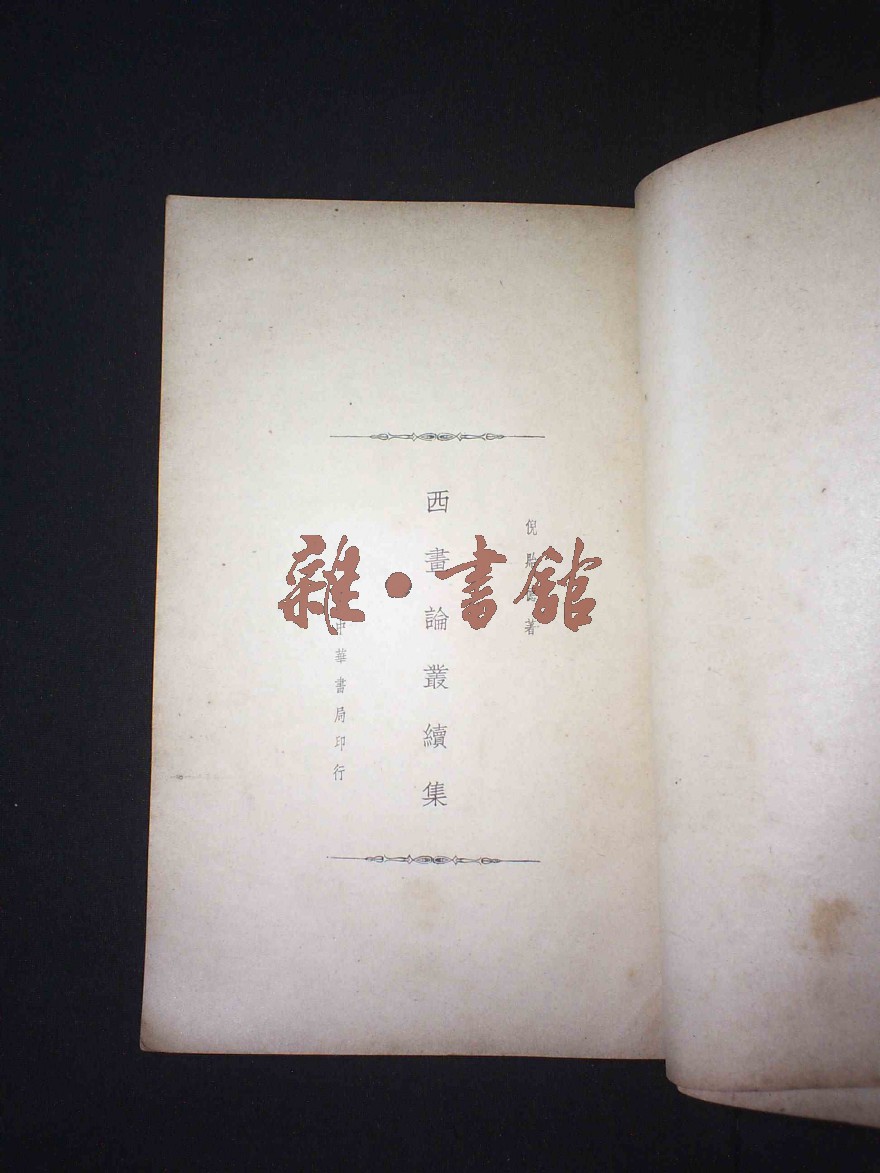 倪貽德著
西畫論叢續集
中華書局印行
雜·書館